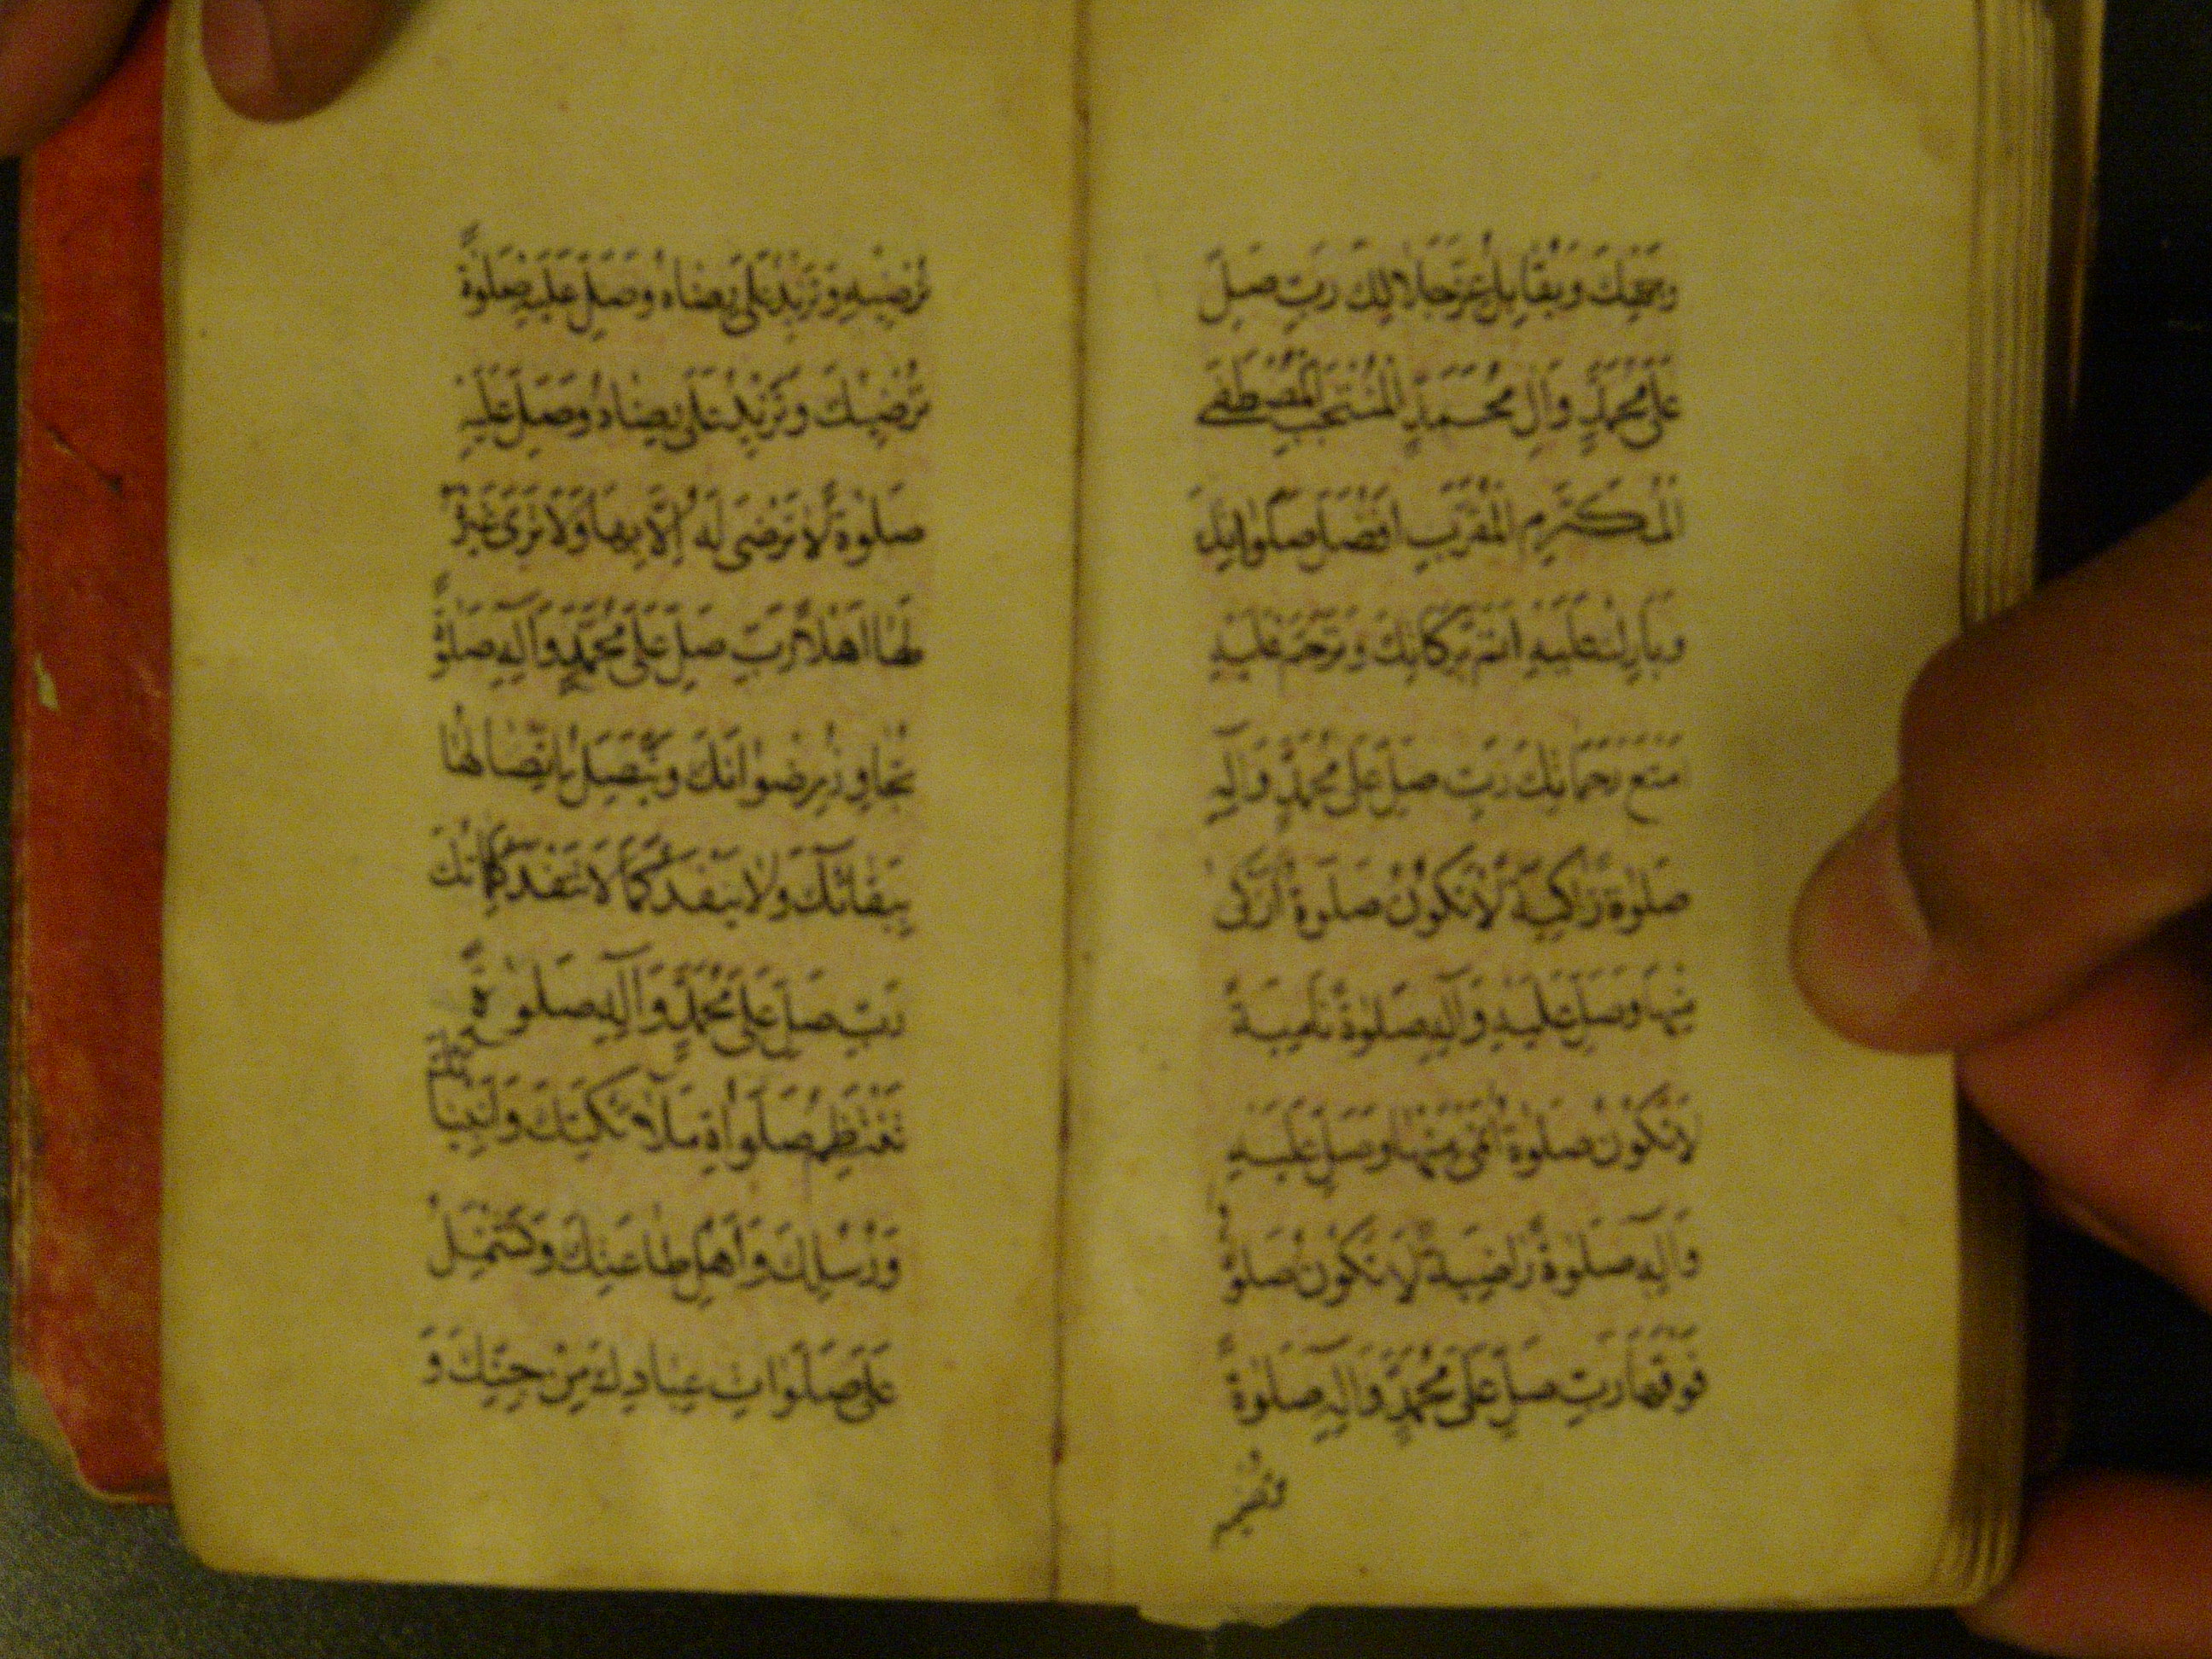 وَبِحَقِّكَ وَبِقَابِلِ عِزِّ جَلَالِكَ رَبِّ صَلِّ
عَلَى مُحَمَّدٍ وَآلِ مُحَمَّدٍ الْمُنْتَجَبِ الْمُصْطَفَى
الْمُكَرَّمِ الْمُقَرَّبِ أَفْضَلَ صَلَوَاتِكَ
وَبَارِكْ عَلَيْهِ أَتَمَّ بَرَكَاتِكَ وَتَرَحَّمْ عَلَيْهِ
أَمْتَعَ رَحَمَاتِكَ رَبِّ صَلِّ عَلَى مُحَمَّدٍ وَآلِهِ
صَلٰوةً زَاكِيَةً لَا تَكُونُ صَلٰوةٌ أَزْكَى
مِنْهَا وَصَلِّ عَلَيْهِ وَآلِهِ صَلٰوةً نَامِيَةً
لَا تَكُونُ صَلٰوةٌ أَنْمَى مِنْهَا وَصَلِّ عَلَيْهِ
وَآلِهِ صَلٰوةً رَاضِيَةً لَا تَكُونُ صَلٰوةٌ
فَوْقَهَا رَبِّ صَلِّ عَلَى مُحَمَّدٍ وَآلِهِ صَلٰوةً
تُرْضِيهِ
تُرْضِيهِ وَتَزِيدُ عَلَى رِضَاهُ وَصَلِّ عَلَيْهِ صَلٰوةً
تُرْضِيكَ وَتَزِيدُ عَلَى رِضَاهُ وَصَلِّ عَلَيْهِ
صَلٰوةً لَا تَرْضَى لَهُ إِلَّا بِهَا وَلَا تَرَى غَيْرَهُ
لَهَا أَهْلًا رَبِّ صَلِّ عَلَى مُحَمَّدٍ وَآلِهِ صَلٰوةً
تُجَاوِزُ رِضْوَانَكَ وَيَتَّصِلُ اتِّصَالُهَا
بِبَقَائِكَ وَلَا يَنْفَدُ كَمَا لَا تَنْفَدُ كَلِمَاتُكَ
رَبِّ صَلِّ عَلَى مُحَمَّدٍ وَآلِهِ صَلٰوةً
تَنْتَظِمُ صَلَوَاةِ مَلَائِكَتِكَ وَأَنْبِيَائِكَ
وَرُسُلِكَ وَأَهْلِ طَاعَتِكَ وَتَشْتَمِلُ
عَلَى صَلَوَاتِ عِبَادِكَ مِنْ جِنِّكَ وَ